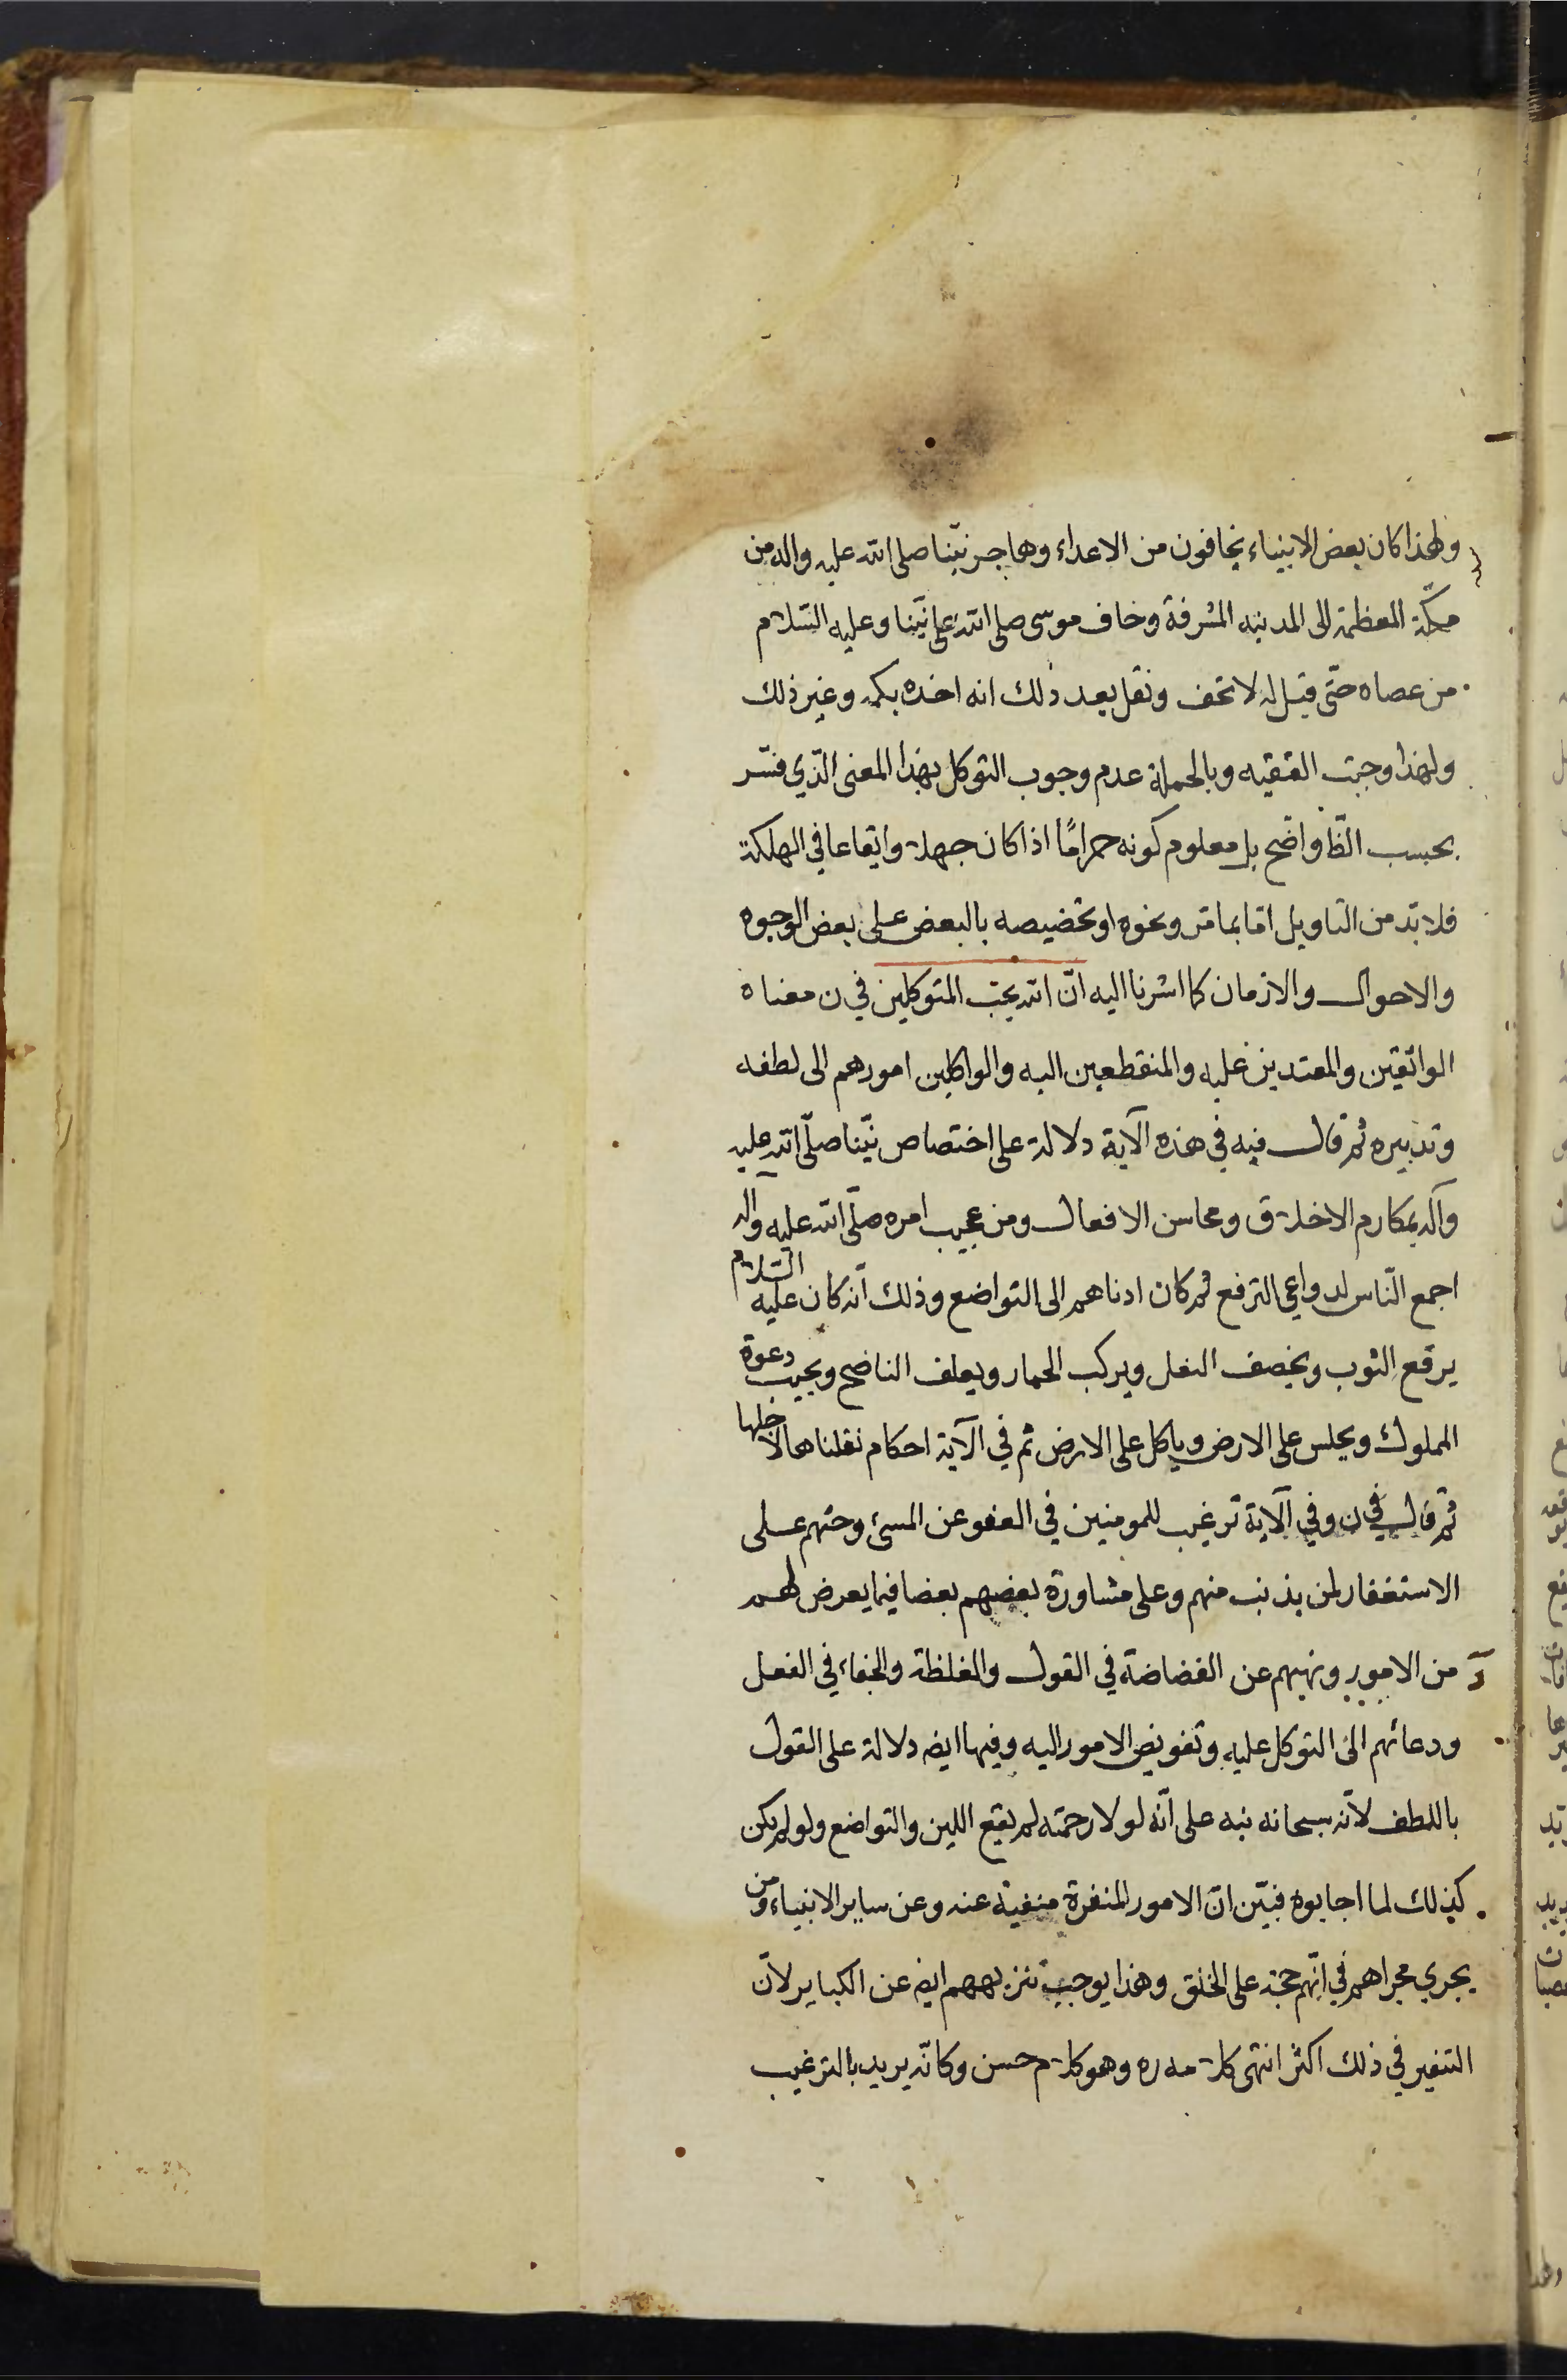 ولهذا كان بعض الانبياء يخافون من الاعداء وهاجر نبيّنا صلى الله عليه واله من
مكّة المعظمة الى المدينه المشرفة وخاف موسى صلى الله على نبيّنا وعليه السّلام
من عصاه حتّى قيل له لا تخف ونقل بعد ذلك انه اخذه بكمه وغير ذلك
ولهذا وجبت التقيه وبالجملة عدم وجوب التوكل بهذا المعنى الّذي فسّر
بحسب الظّا واضح بل معلوم كونه حرامًا اذا كان جهلا وايقاعا في الهلكة
فلا بدّ من التاويل امّا بما مرّ ونحوه او تخصيصه بالبعض على بعض الوجوه
والاحوال والازمان كما اشرنا اليه انّ الله يحبّ المتوكلين في ن معناه
الواثقين والمعتدين عليه والمنقطعين اليه والواكلين امورهم الى لطفه
وتدبيره ثم قال فيه في هذه الآية دلالة على اختصاص نبيّنا صلّى الله عليه
وآله بمكارم الاخلاق ومحاسن الافعال ومن عجيب امره صلّى الله عليه واله
اجمع النّاس لدواعي الترفع ثم كان ادناهم الى التواضع وذلك انّه كان عليه السّلام
يرقع الثوب ويخصف النعل ويركب الحمار ويعلف الناضح ويجيب دعوة
المملوك ويجلس على الارض وياكل على الارض ثم في الآية احكام نقلناها لاجلها
ثم قال في ن وفي الآية ترغيب للمومنين في العفو عن المسئ وحثهم على
الاستغفار لمن يذنب منهم وعلى مشاورة بعضهم بعضا فيما يعرض لهم
من الامور ونهيهم عن الفضاضة في القول والغلظة والجفاء في الفعل
ودعائهم الى التوكل عليه وتفويض الامور اليه وفيها ايضه دلالة على القول
باللطف لانّه سبحانه نبه على انّه لولا رحمته لم يقع اللين والتواضع ولو لم يكن
كذلك لما اجابوه فبيّن انّ الامور المنفرة منفية عنه وعن ساير الانبياء ومن
يجري مجراهم في انّهم حجة على الخلق وهذا يوجب تنزيههم ايضه عن الكباير لانّ
التنفير في ذلك اكثر انتهى كلامه ره وهو كلام حسن وكانّه يريد بالترغيب